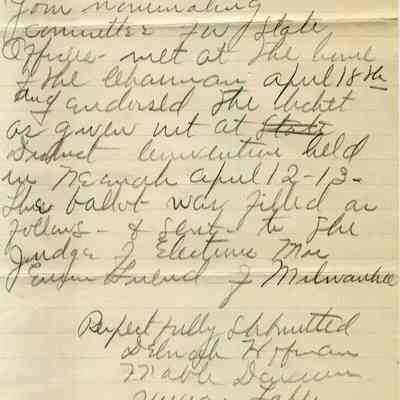 Your nominating
committee for State
Officers - met at the home
of the Chairman April 18th
and endorsed the ticket
as given out at State
District Convention held
in Neenah April 12-13-
The ballot was filled as
follows - & sent to the
Judge of Elections Mrs
Friend of Milwaukee
Respectfully Submitted
Deborah Hofman
Mable